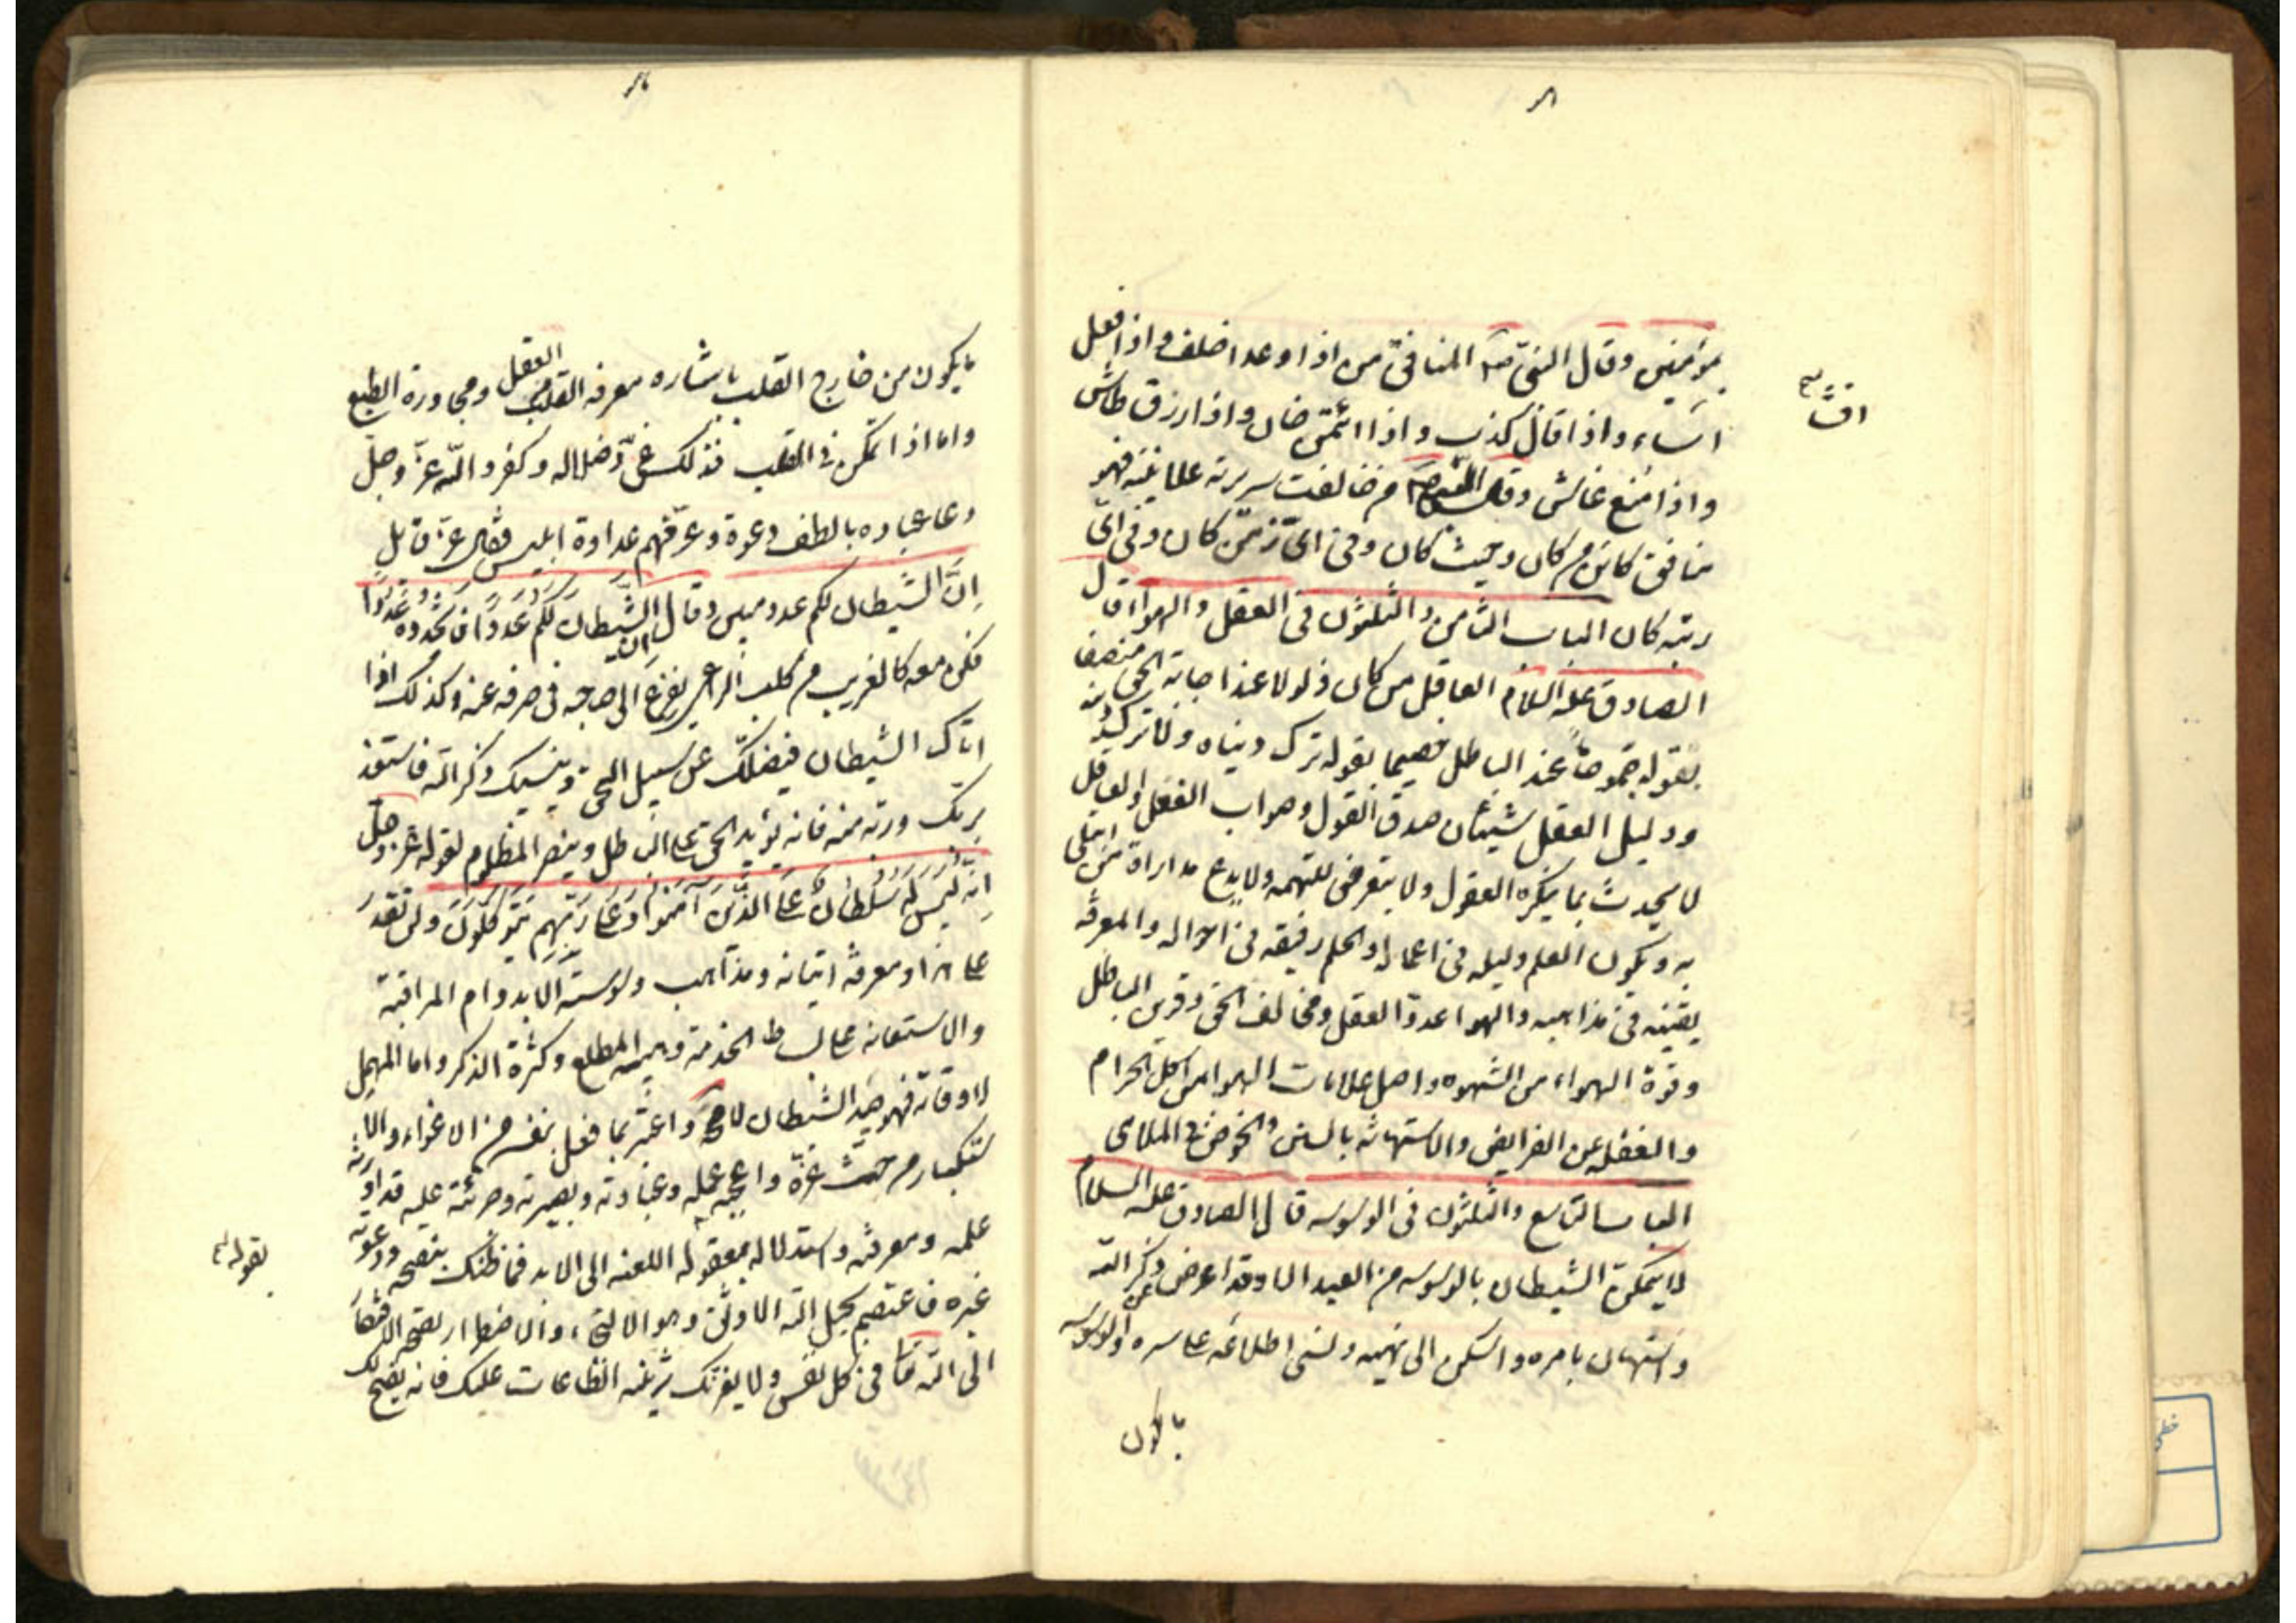 بمؤمنین وقال النبی ص المنافق من اذا وعد اخلف واذا فعل
افشا
اساء واذا قال کذب واذا ائتمن خان واذا رزق طاش
واذا منع غاش وقال النبی ص من خالفت سریرته علانیته فهو
منافق کائن من کان وحیث کان وفی ای زمن کان وفی ای
رتبه کان الباب الثامن والثلثون فی العقل والهواء قال
الصادق علیه السلام العاقل من کان ذلولا عند اجابة الحق منصفا
بقوله جموحا عند الباطل خصیما بقوله ترک دنیاه ولا یترک دینه
ودلیل العقل شیئان صدق القول وصواب الفعل والعاقل
لا یحدث بما ینکره العقول ولا یتعرض للتهمه ولا یدع مداراة من ابتلی
به ویکون العلم دلیله فی اعماله والحلم رفیقه فی احواله والمعرفه
یقینه فی مذاهبه والهوا عدو العقل ومخالف الحق وقرین الباطل
وقوة الهواء من الشهوه واصل علامات الهوا من اکل الحرام
والغفله عن الفرایض والاستهانه بالسنن والخوض فی الملاهی
الباب التاسع والثلثون فی الوسوسه قال الصادق علیه السلام
لا یتمکن الشیطان بالوسوسه من العبد الا وقد اعرض عن ذکر الله
واستهان بامره واسکن الی نهیه ونسی اطلاعه علی سره والوسوسه
ما یکون
ما یکون من خارج القلب باشاره معرفه القلب العقل ومجاورة الطبع
واما اذا تمکن فی القلب فذلک غی وضلاله وکفر والله عز وجل
دعا عباده بالطف دعوة وعرفهم عداوة ابلیس فقال عز قایل
اِنَّ الشیطان لکم عدو مبین وقال اِن الشَّیْطانَ لَکُم عَدُوٌّ فاتخذوه عَدُوًّا
فکن معه کالغریب مع کلب الراعی یفزع الی صاحبه فی صرفه عنه وکذلک اذا
اتاک الشیطان فیضلک عن سبیل الحق وینسیک ذکر الله فاستعذ
بربک وربه منه فانه یؤید الحق علی الباطل وینصر المظلوم لقوله عز وجل
اِنَّهُ لَیْسَ لَهُ سُلْطانٌ عَلَی الَّذینَ آمَنُوا وَعَلی رَبِّهِم یَتَوَکَّلُونَ ولن تقدر
علی هذا ومعرفه اتیانه ومذاهب وسوسته الا بدوام المراقبه
والاستقامه علی بساط الخدمه وهیبه المطلع وکثرة الذکر واما المهمل
لاوقاته فهو صید الشیطان لا محاله واعتبر بما فعل بنفسه من الاغواء والا
ستکبار من حیث غره واعجبه عمله وعبادته وبصیرته وجرئته علیه قد اورثه
علمه ومعرفته واستدلاله بمعقوله اللعنه الی الابد فما ظنک بنصحه ودعوته
بقوله
غیره فاعتصم بحبل الله الاوثق وهو الالتجاء والاضطرار بصحه الافتقار
الی الله تعالی فی کل نفس ولا یغرنک تزیینه الطاعات علیک فانه یفتح لک